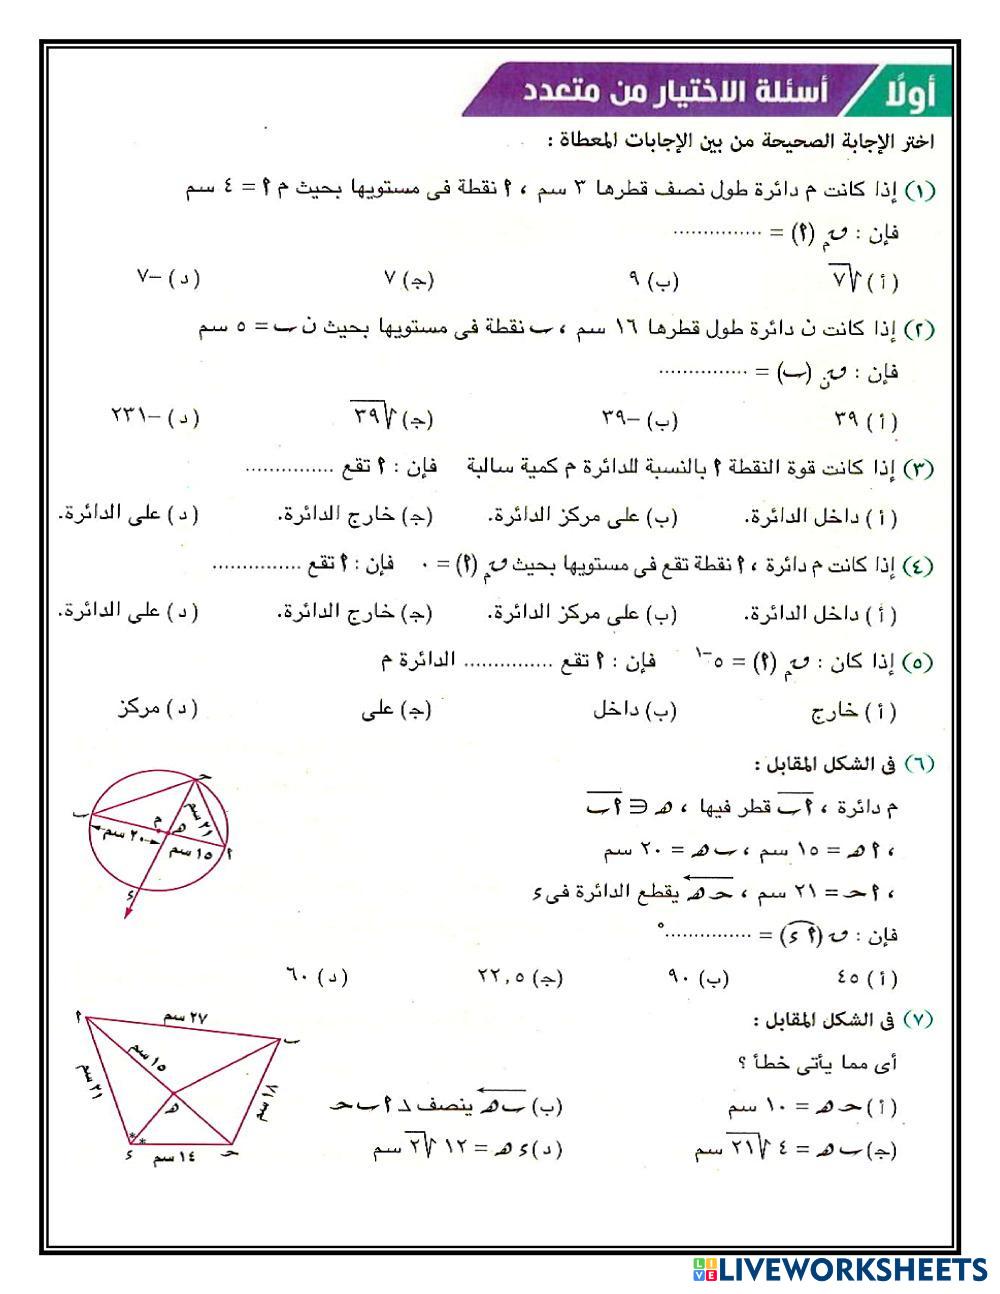 أولًا أسئلة الاختيار من متعدد
اختر الإجابة الصحيحة من بين الإجابات المعطاة :
(١) إذا كانت م دائرة طول نصف قطرها ٣ سم ، ٢ نقطة فى مستويها بحيث م ٢ = ٤ سم
فإن : ىم (٢) = ...............
(أ) √٧ (ب) ٩ (جـ) ٧ (د) –٧
(٢) إذا كانت ن دائرة طول قطرها ١٦ سم ، ب نقطة فى مستويها بحيث ن ب = ٥ سم
فإن : ىن (ب) = ...............
(أ) ٣٩ (ب) –٣٩ (جـ) √٣٩ (د) –٢٣١
(٣) إذا كانت قوة النقطة ٢ بالنسبة للدائرة م كمية سالبة فإن : ٢ تقع ...............
(أ) داخل الدائرة. (ب) على مركز الدائرة. (جـ) خارج الدائرة. (د) على الدائرة.
(٤) إذا كانت م دائرة ، ٢ نقطة تقع فى مستويها بحيث ىم (٢) = ٠ فإن : ٢ تقع ...............
(أ) داخل الدائرة. (ب) على مركز الدائرة. (جـ) خارج الدائرة. (د) على الدائرة.
(٥) إذا كان : ىم (٢) = ٥⁻¹ فإن : ٢ تقع ............... الدائرة م
(أ) خارج (ب) داخل (جـ) على (د) مركز
(٦) فى الشكل المقابل :
م دائرة ، ٢ب قطر فيها ، هـ ∈ ٢ب
، ٢هـ = ١٥ سم ، ب هـ = ٢٠ سم
، ٢حـ = ٢١ سم ، حـ هـ يقطع الدائرة فى ء
فإن : ى (٢ ء) = ...............°
(أ) ٤٥ (ب) ٩٠ (جـ) ٢٢,٥ (د) ٦٠
حـ
ب
م
هـ
٢
ء
٢١ سم
٢٠ سم
١٥ سم
(٧) فى الشكل المقابل :
أى مما يأتى خطأ ؟
(أ) حـ هـ = ١٠ سم (ب) ب هـ ينصف ∠ ٢ ب حـ
(جـ) ب هـ = ٤ √٢١ سم (د) ء هـ = ١٢ √٢ سم
٢
٢٧ سم
ب
١٥ سم
٢١ سم
١٨ سم
هـ
ء
١٤ سم
حـ
LIVEWORKSHEETS